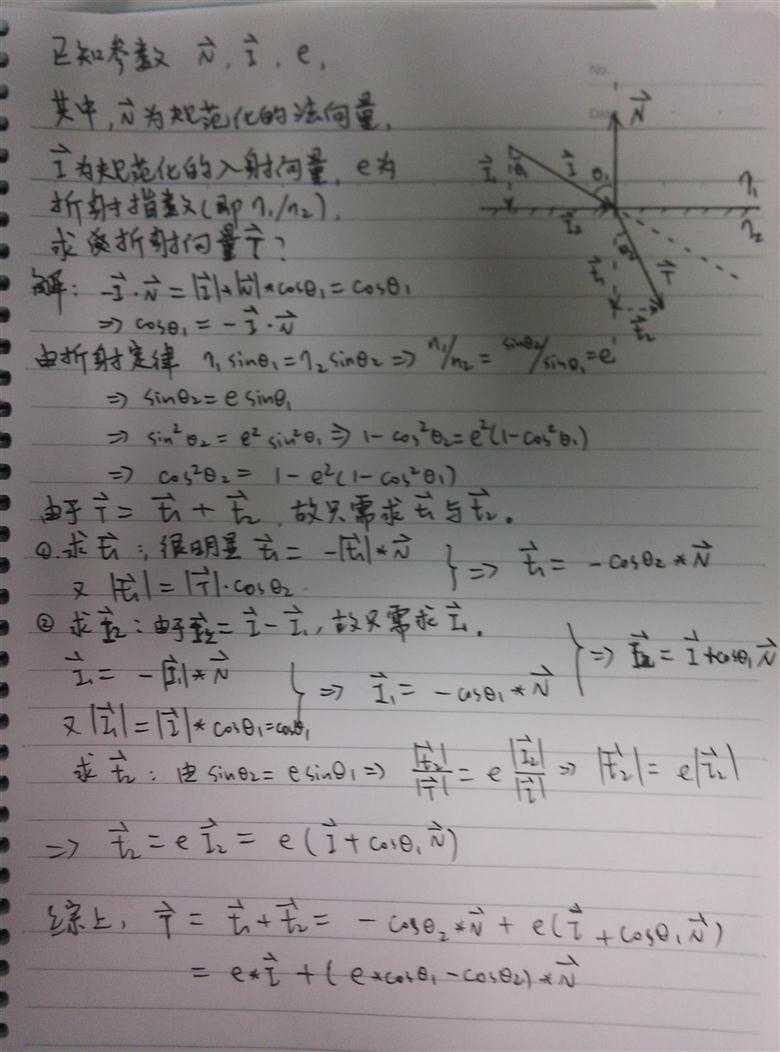 已知参数 N⃗, I⃗, e,
其中, N⃗为规范化的法向量,
I⃗为规范化的入射向量, e为
折射指数(即η₁/η₂).
求 折射向量T⃗?
No.
N⃗
I⃗₁
θ₁
I⃗
θ₁
η₁
I⃗₂
η₂
θ₂
t⃗₁
T⃗
t⃗₂
解: -I⃗·N⃗ = |I⃗|*|N⃗|*cosθ₁ = cosθ₁
⇒ cosθ₁ = -I⃗·N⃗
由折射定律 η₁sinθ₁=η₂sinθ₂ ⇒ η₁/η₂ = sinθ₂/sinθ₁ = e
⇒ sinθ₂ = e sinθ₁
⇒ sin²θ₂ = e² sin²θ₁ ⇒ 1-cos²θ₂ = e²(1-cos²θ₁)
⇒ cos²θ₂ = 1-e²(1-cos²θ₁)
由于 T⃗ = t⃗₁ + t⃗₂, 故只需求 t⃗₁与t⃗₂.
①.求 t⃗₁: 很明显 t⃗₁ = -|t⃗₁|*N⃗ } ⇒ t⃗₁ = -cosθ₂*N⃗
又 |t⃗₁| = |T⃗|·cosθ₂
② 求I⃗₂: 由于I⃗₂ = I⃗-I⃗₁, 故只需求 I⃗₁.
I⃗₁ = -|I⃗₁|*N⃗ } ⇒ I⃗₁ = -cosθ₁*N⃗ } ⇒ I⃗₂ = I⃗+cosθ₁N⃗
又 |I⃗₁| = |I⃗|*cosθ₁=cosθ₁
求 t⃗₂: 由 sinθ₂ = e sinθ₁ ⇒ |t⃗₂|/|T⃗| = e |I⃗₂|/|I⃗| ⇒ |t⃗₂| = e|I⃗₂|
⇒ t⃗₂ = e I⃗₂ = e(I⃗+cosθ₁N⃗)
综上, T⃗ = t⃗₁+t⃗₂ = -cosθ₂*N⃗ + e(I⃗+cosθ₁N⃗)
= e*I⃗ + (e*cosθ₁-cosθ₂)*N⃗